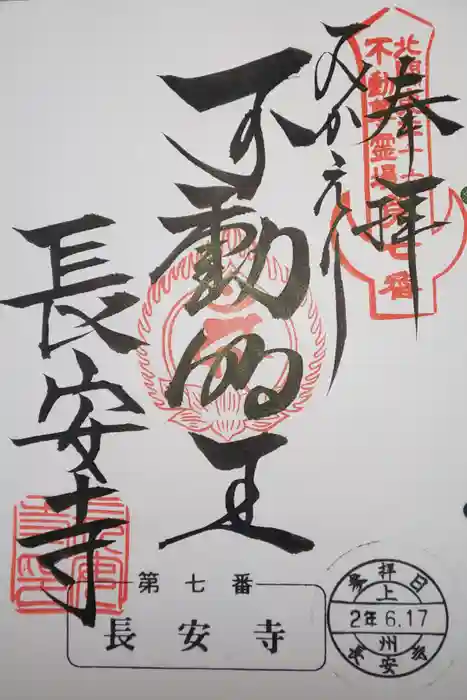 奉拝
不動尊霊場第七番
みかえり
不動明王
長安寺
第七番
長安寺
参拝日
上
2年 6.17
州
長安寺